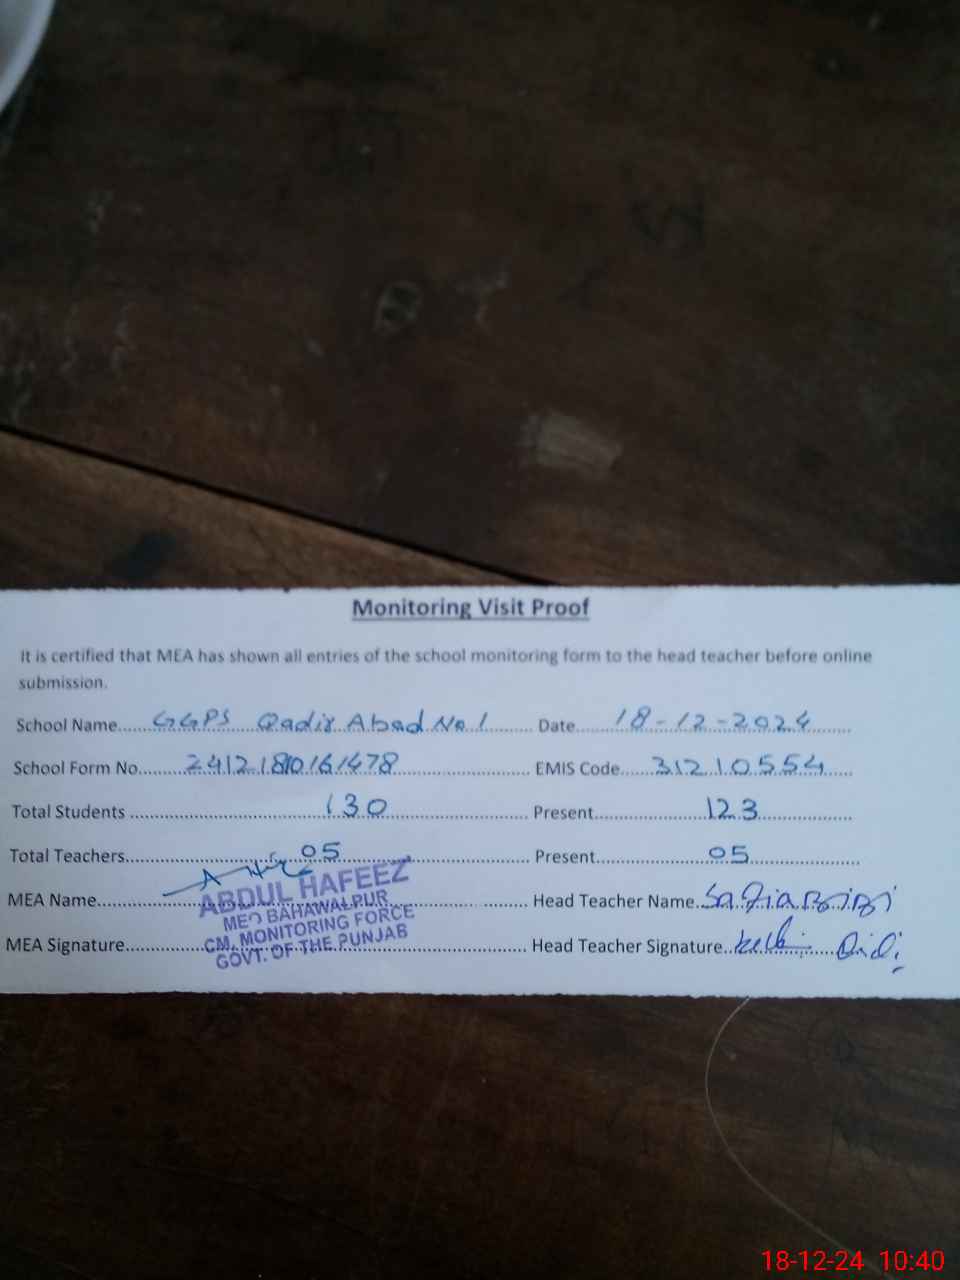 Monitoring Visit Proof
It is certified that MEA has shown all entries of the school monitoring form to the head teacher before online
submission.
School Name......GGPS Qadir Abad No 1...... Date......18-12-2024......
School Form No......24121810161478...... EMIS Code......31210554......
Total Students ......130...... Present......123......
Total Teachers......05...... Present......05......
MEA Name...... Head Teacher Name...Safia Bibi
ABDUL HAFEEZ
MEO BAHAWALPUR
CM, MONITORING FORCE
GOVT. OF THE PUNJAB
MEA Signature...... Head Teacher Signature......
18-12-24 10:40